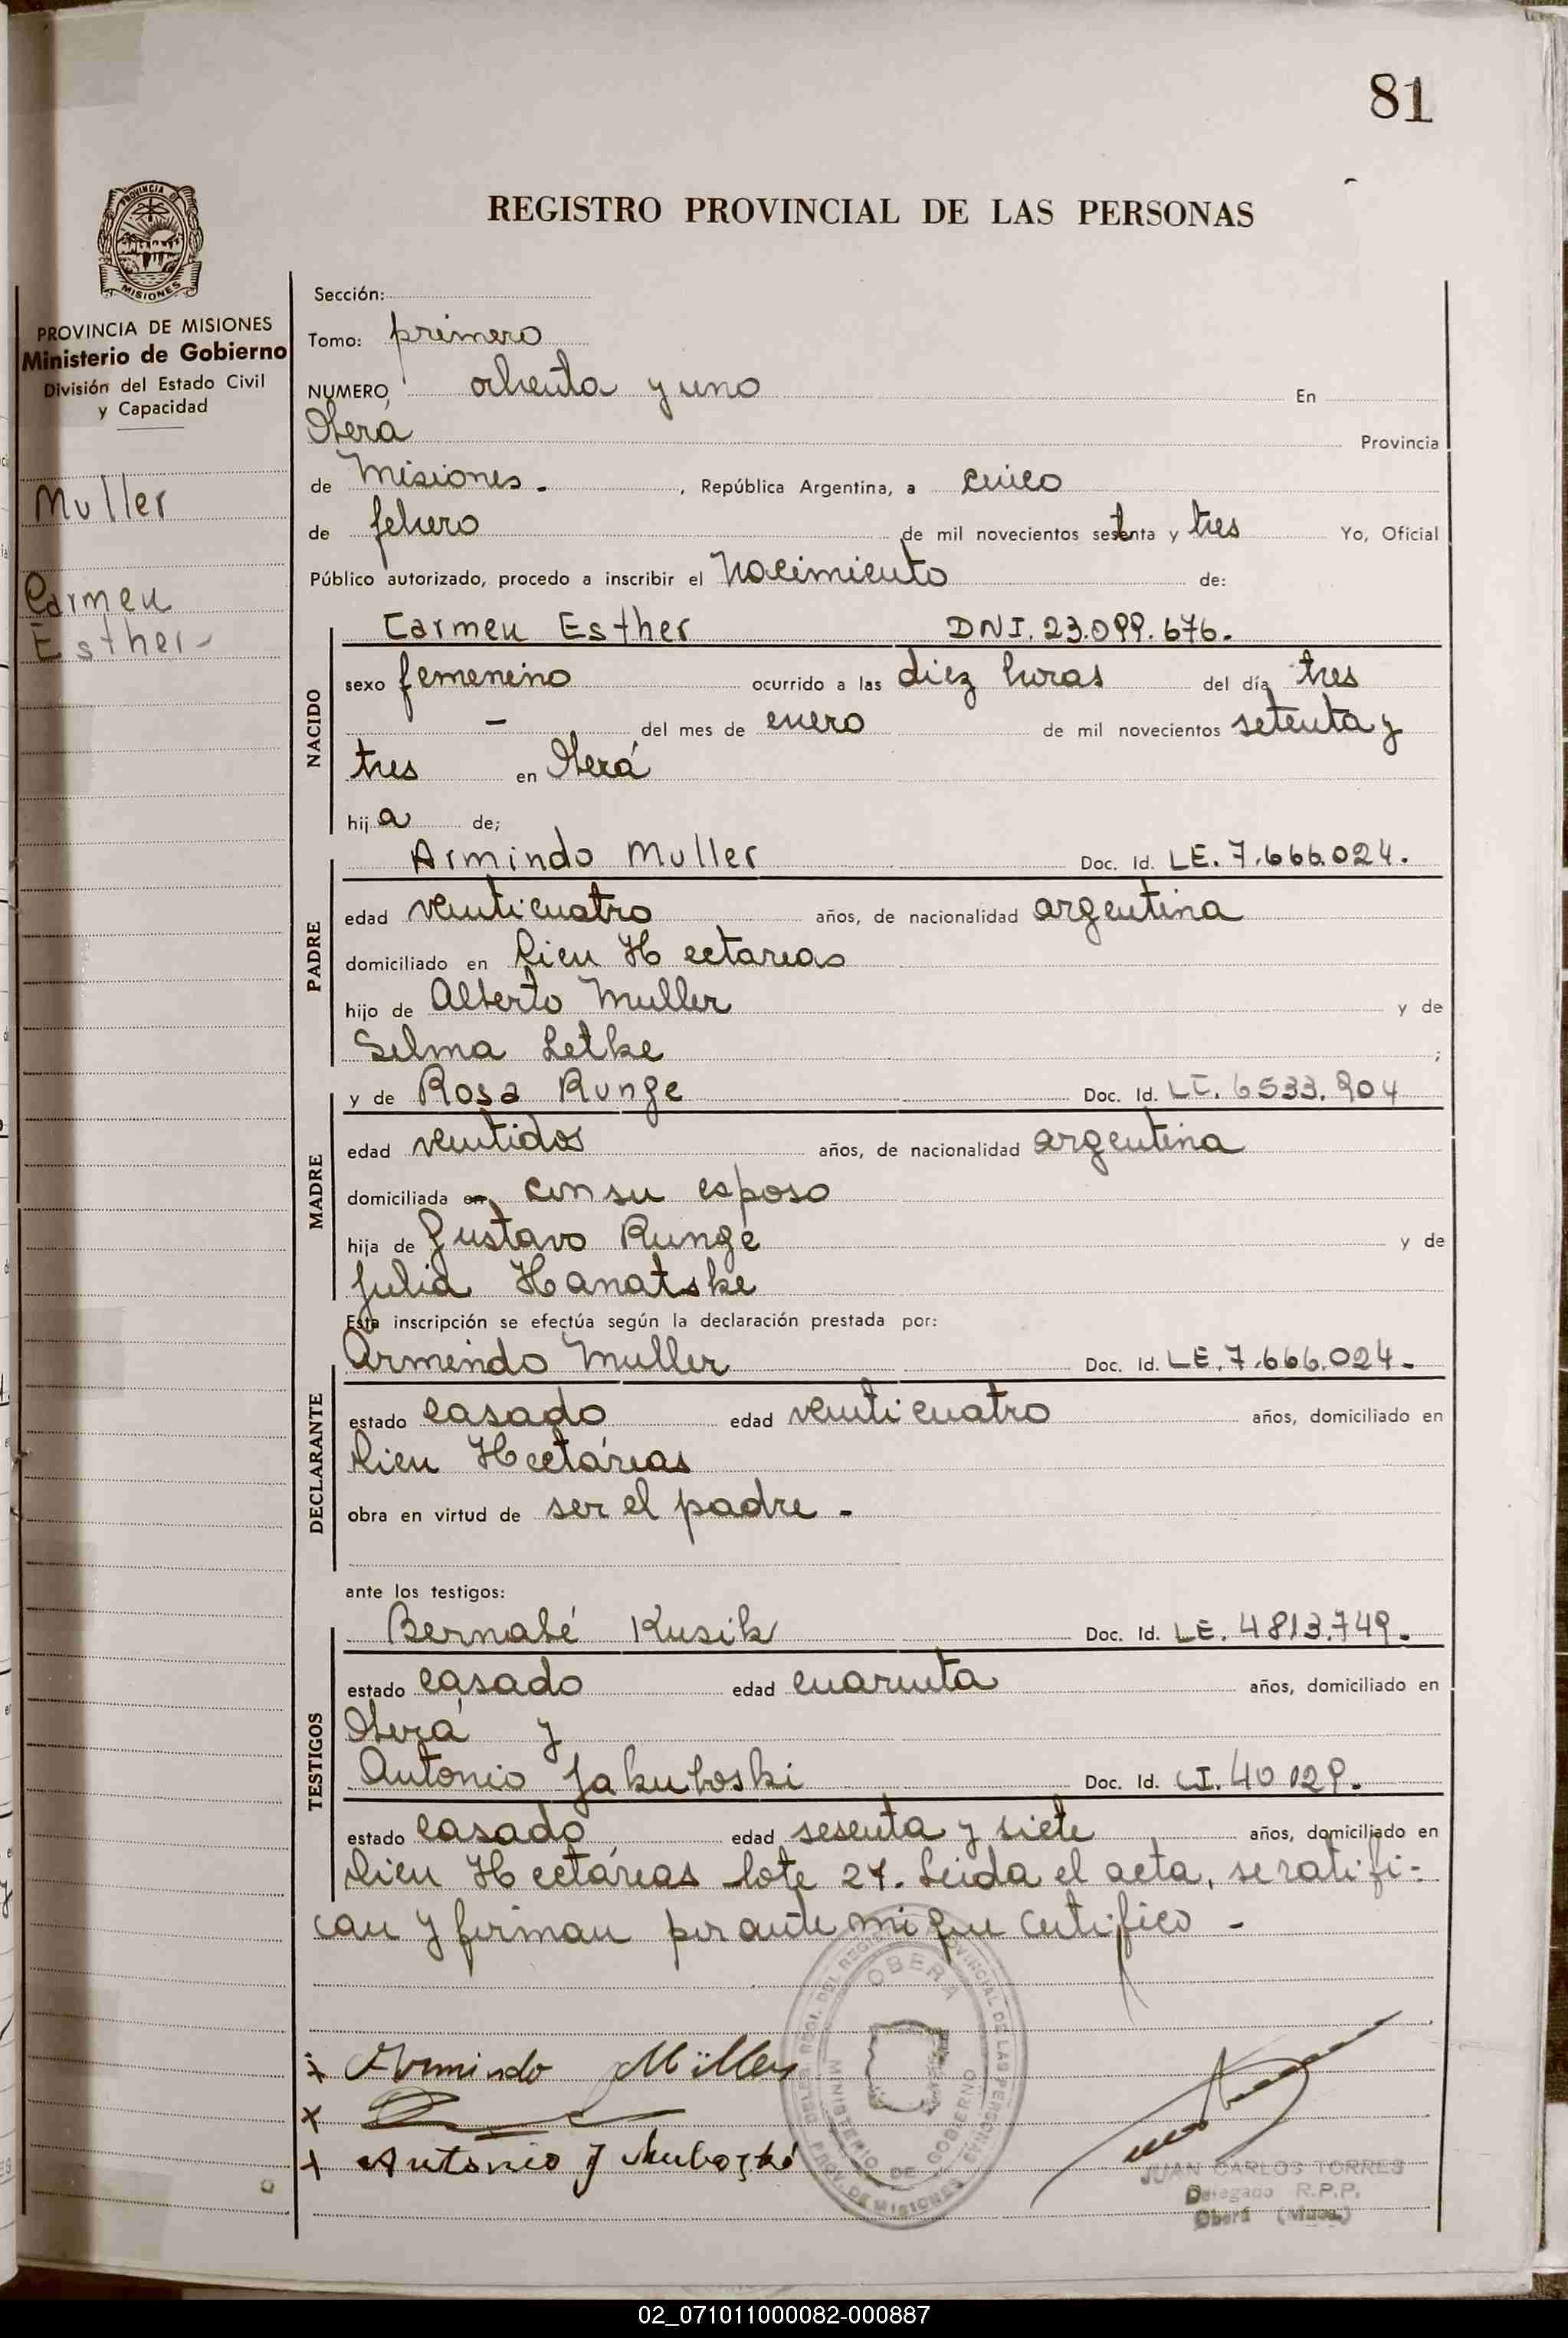 81
REGISTRO PROVINCIAL DE LAS PERSONAS
PROVINCIA DE
MISIONES
PROVINCIA DE MISIONES
Ministerio de Gobierno
División del Estado Civil
y Capacidad
Muller
Carmen
Esther-
Sección:
Tomo: primero
NUMERO, ochenta y uno En
Oberá Provincia
de Misiones. , República Argentina, a cinco
de febrero de mil novecientos setenta y tres Yo, Oficial
Público autorizado, procedo a inscribir el Nacimiento de:
NACIDO
Carmen Esther DNI. 23.099.676.
sexo femenino ocurrido a las diez horas del día tres
- del mes de enero de mil novecientos setenta y
tres en Oberá
hija de;
PADRE
Armindo Muller Doc. Id. LE. 7.666.024.
edad venticuatro años, de nacionalidad argentina
domiciliado en Cien Hectareas
hijo de Alberto Muller y de
Selma Letke ;
MADRE
y de Rosa Runge Doc. Id. LC. 6533.904
edad ventidos años, de nacionalidad argentina
domiciliada en con su esposo
hija de Gustavo Runge y de
Julia Hanatske
Esta inscripción se efectúa según la declaración prestada por:
DECLARANTE
Armindo Muller Doc. Id. LE. 7.666.024.
estado casado edad venticuatro años, domiciliado en
Cien Hectáreas
obra en virtud de ser el padre -
ante los testigos:
TESTIGOS
Bernabé Kusik Doc. Id. LE. 4813.749.
estado casado edad cuarenta años, domiciliado en
Oberá y
Antonio Jakuboski Doc. Id. CI. 40129.
estado casado edad sesenta y siete años, domiciliado en
Cien Hectáreas lote 27. Leida el acta, se ratifi-
can y firman por ante mi que certifico -
x Armindo Müller
x
x Antonio Jakuboski
OBERA
MINISTERIO DE GOBIERNO
DELEG. REGI. DEL REGISTRO PROVINCIAL DE LAS PERSONAS
PROV. DE MISIONES
JUAN CARLOS TORRES
Delegado R.P.P.
Oberá (Mnes.)
02_071011000082-000887